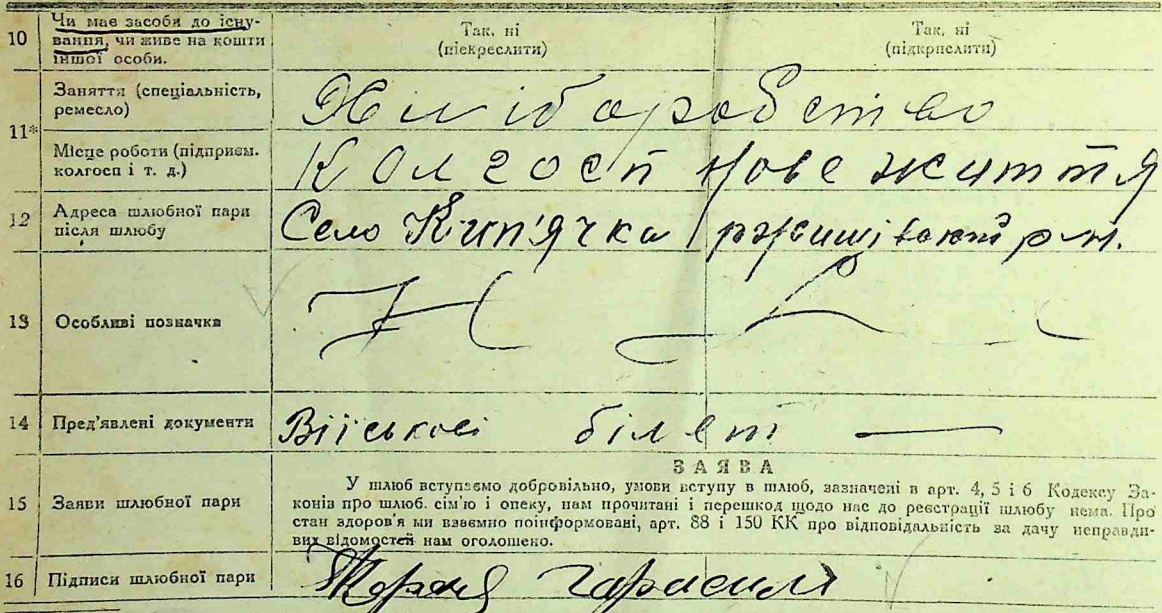 10 Чи має засоби до існу-
вання, чи живе на кошти
іншої особи.
Так, ні
(піекреслити)
Так, ні
(підкрислити)
11*
Заняття (спеціальність,
ремесло)
Хліборобство
Місце роботи (підприєм.
колгосп і т. д.)
Колгосп нове життя
12 Адреса шлюбної пари
після шлюбу
Село Кип'ячка ржищівський р-н.
13 Особливі позначки
14 Пред'явлені документи
Війскові білет —
15 Заяви шлюбної пари
ЗАЯВА
У шлюб вступаємо добровільно, умови вступу в шлюб, зазначені в арт. 4, 5 і 6 Кодексу За-
конів про шлюб. сім'ю і опеку, нам прочитані і перешкод щодо нас до реєстрації шлюбу нема. Про
стан здоров'я ми взаємно поінформовані, арт. 88 і 150 КК про відповідальність за дачу неправди-
вих відомостей нам оголошено.
16 Підписи шлюбної пари